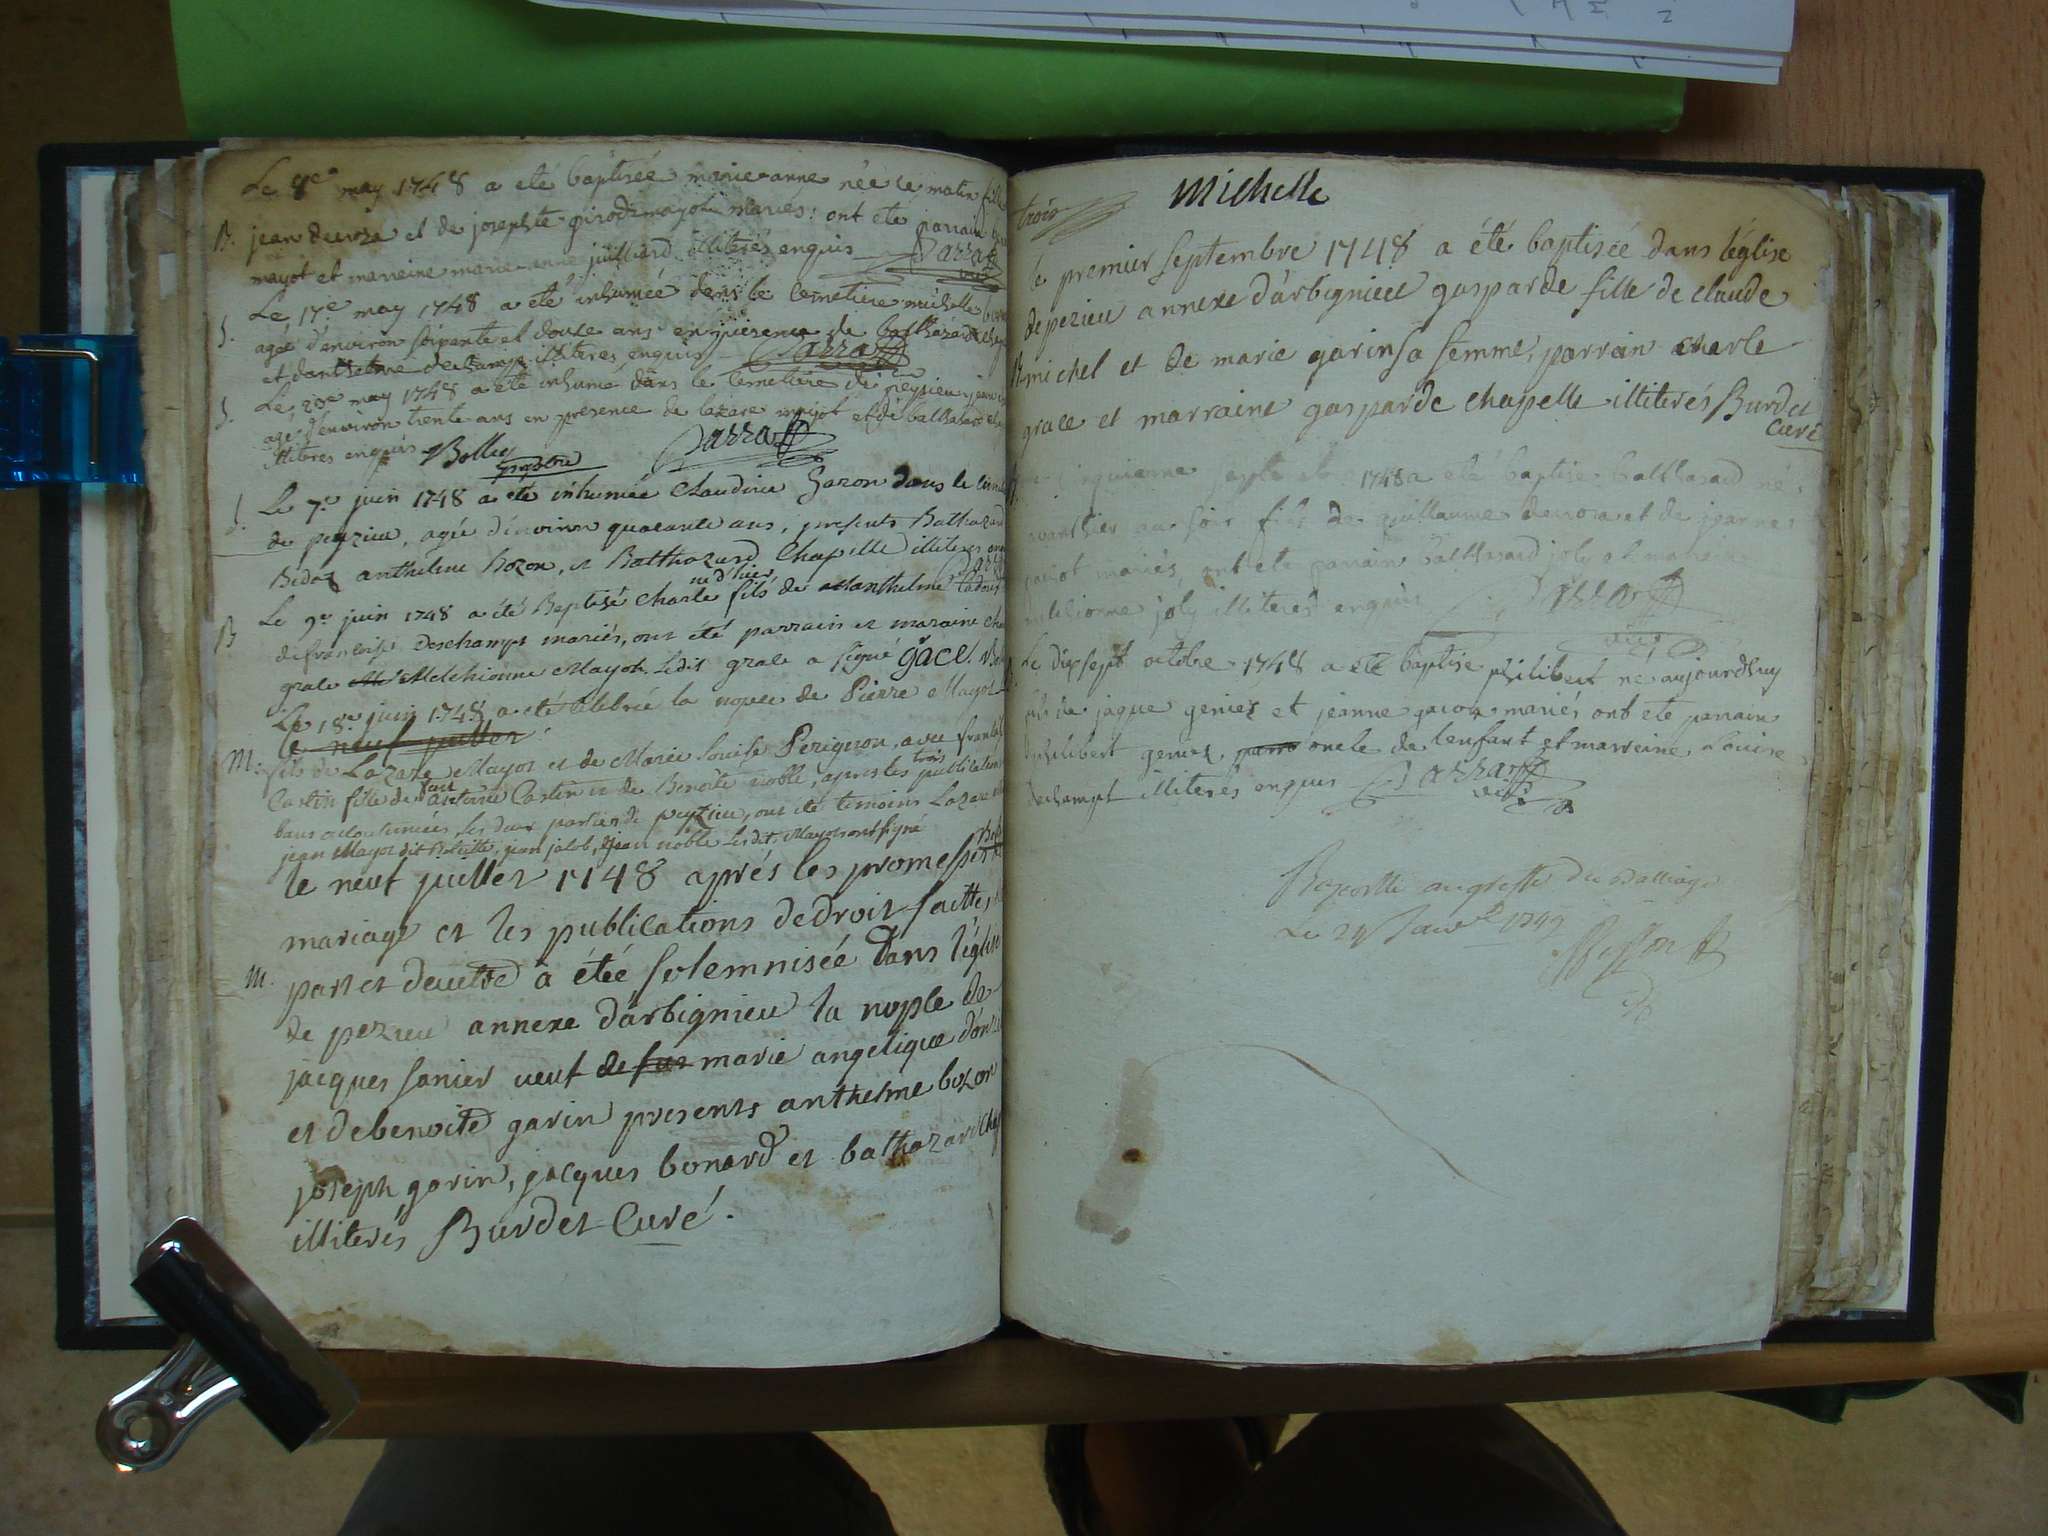 Le 8e may 1748 a eté baptisée marie anne née ce matin fille
B. jean deeroze et de josephte girod mayot mariés: ont ete parrain
mayot et marreine marie anne juilliard illiterés enquis Darraz
curé
Le 17e may 1748 a eté inhumée dens le Cemetiere michelle
S. agée d'environ soixante et douze ans en presence de balthazard
et d'anthelme dechamp illiteres enquis Darraz
Le 23e may 1748 a eté inhumé dans le cemetiere de peyzieu jean
S. agé d'environ trente ans en presence de lazare mayot et de balthasard
illiteres enquis Bolley Darraz
Le 7e juin 1748 a été inhumée Claudine Gazon dans le
S. de peyzieu, agée d'environ quarante ans, presents Bathazard
Bidaz anthelme Bozon, et Balthazard Chapelle illiteres
né d'hier
B Le 9e juin 1748 a été Baptisé Charle fils de anthelme
de françoise Deschamps mariés, ont été parrain et maraine
grale Melchionne Mayot. Ledit grale a signé gacel
Le 18e juin 1748 a été célébrée la nopce de Pierre Mayot
le neuf juillet
M. fils de Lazare Mayot et de Marie Louise Perignon, avec
trois
Castin fille de feu antoine Castin et de Benoite noble, apres les publications
bans accoutumées, les deux parties de peyzieu, ont été temoins Lazare
jean Mayot dit Baliste, jean jacob, jean noble Lesdits Mayot ont signé
le neuf juillet 1748 aprés les promesses
mariage et les publications de droit faittes
M. part et dautre a étée solemnisée dans l'église
de pezieu annexe d'arbignieu la nopce de
jacques sanier veuf de feu marie angelique
et de benoite garin presents anthelme bozon
joseph garin, jacques bonard et bathazard
illiterés Burdet Curé.
trois Michelle
le premier septembre 1748 a été baptisée dans l'église
de pezieu annexe d'arbignieu gasparde fille de claude
B michel et de marie garin sa femme, parrain charle
grale et marraine gasparde chapelle illiterés Burdet
Curé
1748 a eté baptisé balthasard né
avanthier au soir fils de guillaume deeroze et de jeanne
mariés, ont ete parrain balthasard joly et marraine
melchionne joly illiteres enquis Darraz
curé
Le dixsept octobre 1748 a eté baptisé philibert né aujourdhuy
fils de jaque geniez et jeanne gacon mariés ont ete parrain
philibert geniez, parr oncle de lenfant et marreine Louise
dechampt illiterés enquis Darraz
curé
Raporté au greffe du Balliage
Le 24 Janv. 1749